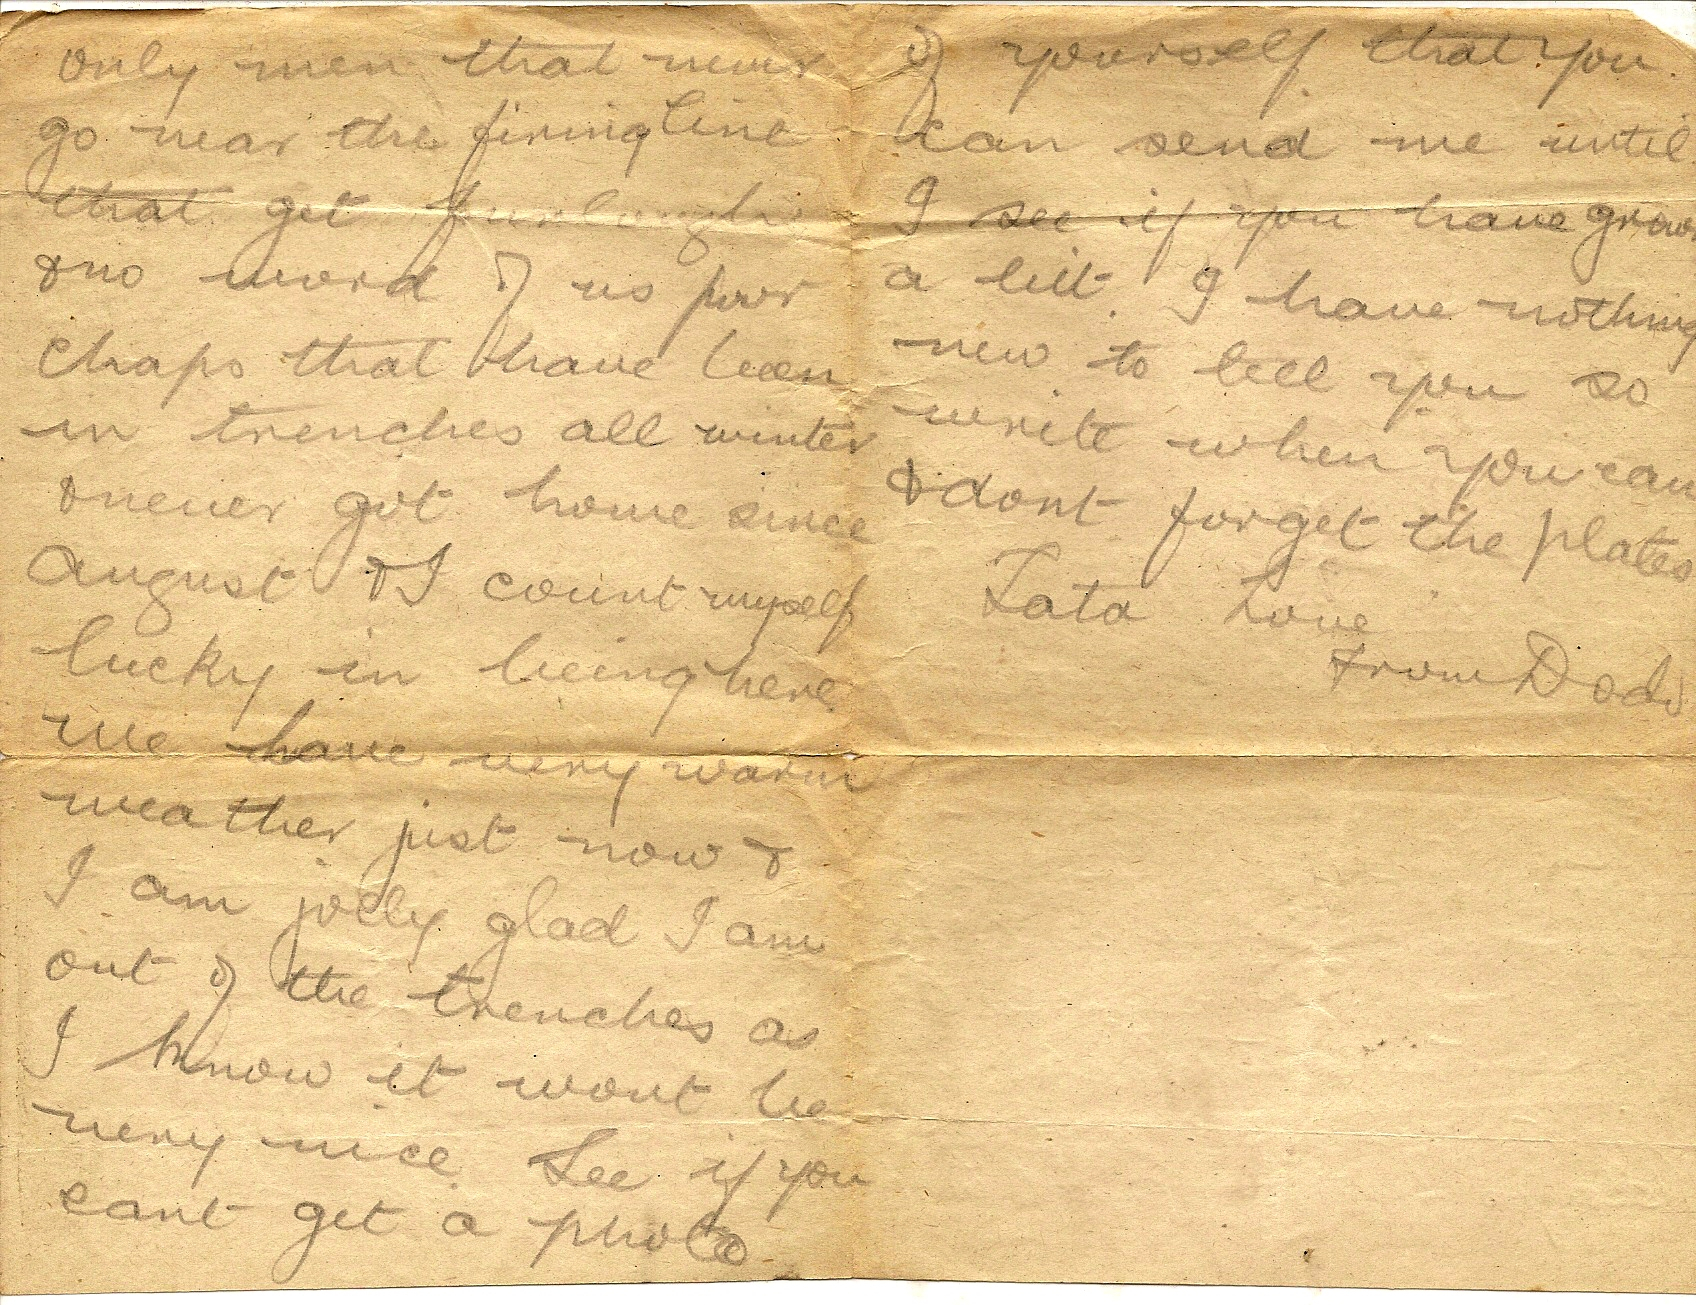 only men that never
go near the firing line
that get furloughs
& no word of us poor
chaps that have been
in trenches all winter
& never got home since
August & I count myself
lucky in being here
we have very warm
weather just now &
I am jolly glad I am
out of the trenches as
I know it wont be
very nice. See if you
cant get a photo
of yourself that you
can send me until
I see if you have grown
a bit. I have nothing
new to tell you so
write when you can
& dont forget the plates
Tata Love
From Dods